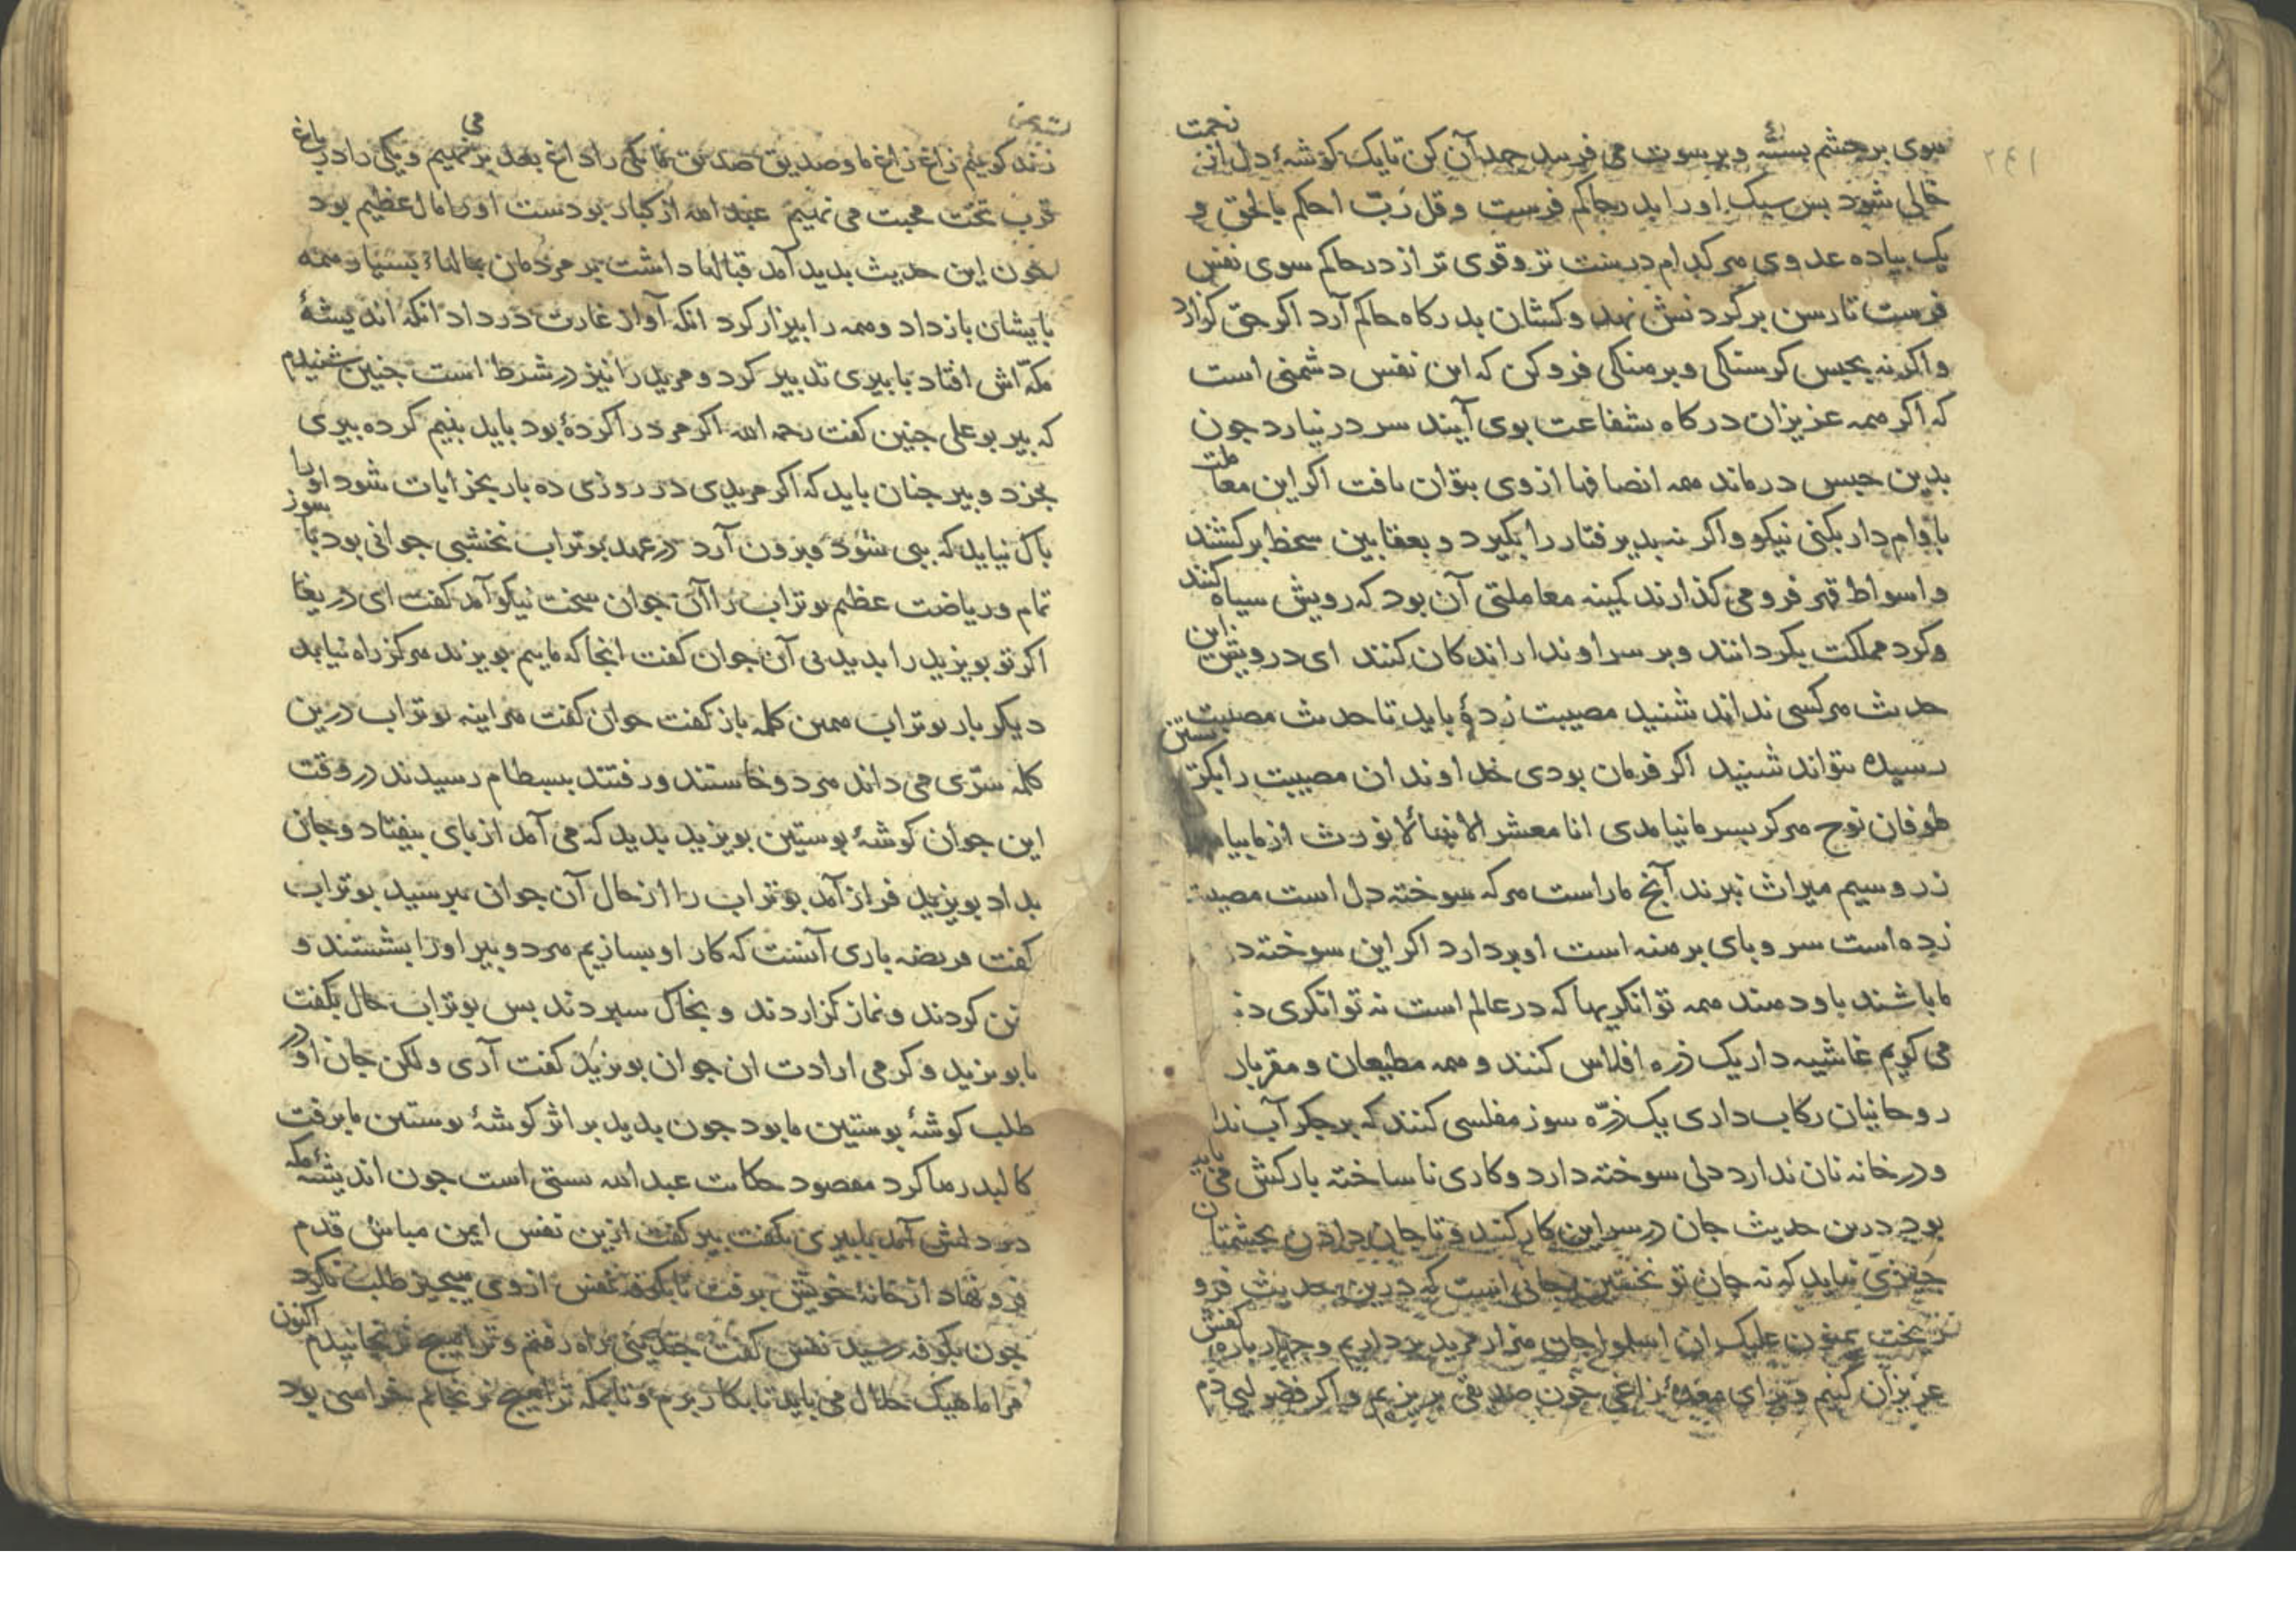 ۲۴۱
سوی بر چشم بستهٔ و بر سوت می فرسد جهد آن کن تا یک کوشهٔ دل از زحمت
خالی شود بس سبک او را بدر حاکم فرست و قل رب احکم بالحق و
یک بیاده عدوی هر کدام درشت تر و قوی تر از در حاکم سوی نفس
فرست تا رسن بر کردنش نهد و کشان بدرکاه حاکم آرد اکر حق کزارد
و اکر نه بحبس کرسنکی و برهنکی فرو کن که این نفس دشمنی است
که اکر همه عزیزان درکاه بشفاعت بوی آیند سر در نیارد جون
بدین حبس درماند همه انصافها از وی بتوان یافت اکر این معاملت
با وام دار بکنی نیکو و اکر نه بدیرفتار را بکیرد و بعقابین سخط برکشند
و اسواط قهر فرو می کذارند کمینه معاملتی آن بود که رویش سیاه کنند
و کرد مملکت بکردانند و بر سر او ندا کنند ای درویش این
حدیث هر کسی نداند شنید مصیبت زدهٔ باید تا حدیث مصیبت
رسیده بتواند شنید اکر فرمان بودی خداوندان مصیبت را بکرستن
طوفان نوح هرکز بسر ما نیامدی انا معشر الانبیاء لا نورث از ما
زر و سیم میراث نبرند آنج ماراست هر که سوخته دل است مصیبت
زده است سر و بای برهنه است او بردارد اکر این سوخته
ما باشند با دردمند همه توانکریها که در عالم است نه توانکری
می کویم غاشیه دار یک ذره افلاس کنند و همه مطیعان و مقربان
روحانیان رکاب داری یک ذرّه سوز مفلسی کنند که بر جکر آب ندارد
و در خانه نان ندارد دلی سوخته دارد و کاری ناساخته بارکش می باید
بود درین حدیث جان در سر این کار کنند و تا جان دادن بچشمتان
جیزی نیاید که نه جان تو نخستین جانی است که درین حدیث فرو
شد یمنون علیک ان اسلموا جان هزار مرید برداریم و جهار باره کفش
عزیزان کنیم و برای معدهٔ زاغی خون صدیقی بریزیم و اکر فضولیی دم
زند کوییم زاغ زاغ ما و صدیق صدیق ما یکی را داغ بعد بر می نهیم و یکی را در باغ
قرب تخت محبت می نهیم عبد الله از کبار بودست او را مال عظیم بود
جون این حدیث بدید آمد قبالها داشت بر مردمان بمالهاء بسیار همه
بایشان باز داد و همه را بیزار کرد انکه آواز غارت در داد انکه اندیشهٔ
مکّه اش افتاد با بیری تدبیر کرد و مرید را نیز در شرط است جنین شنیدم
که بیر بوعلی جنین کفت رحمه الله اکر مرد را کردهٔ بود باید بنیم کرده بیری
بخرد و بیر جنان باید که اکر مریدی در روزی ده بار بخرابات شود او را
باک نیاید که بی شود و بیرون آرد در عهد بوتراب نخشبی جوانی بود با سوز
تمام و ریاضت عظیم بوتراب را آن جوان سخت نیکو آمد کفت ای دریغا
اکر تو بویزید را بدیدیی آن جوان کفت انجا که ماییم بویزید هرکز راه نیابد
دیکر بار بوتراب همین کلمه باز کفت جوان کفت هراینه بوتراب درین
کلمه سرّی می داند هر دو خاستند و رفتند ببسطام رسیدند در وقت
این جوان کوشهٔ بوستین بویزید بدید که می آمد از بای بیفتاد و جان
بداد بویزید فراز آمد بوتراب را از حال آن جوان ببرسید بوتراب
کفت فریضه باری آنست که کار او بسازیم هر دو بیر او را بشستند و
کردند و نماز کزاردند و بخاک سبردند بس بوتراب حال بکفت
با بویزید و کرمی ارادت ان جوان بویزید کفت آری ولکن جان او در
طلب کوشهٔ بوستین ما بود جون بدید بر اثر کوشهٔ بوستین ما برفت
کالبد رها کرد مقصود حکایت عبد الله است جون اندیشهٔ مکه
در دلش آمد با بیری بکفت بیر کفت ازین نفس ایمن مباش قدم
فرو نهاد از خانهٔ خویش برفت تا بکوفه نفس از وی هیجیز طلب نکرد
جون بکوفه رسید نفس کفت جندینی براه رفتم و ترا هیج نرنجانیدم اکنون
مرا ماهیک حلال می باید تا بکار برم و تا بمکه ترا هیج نرنجانم خراسی بود